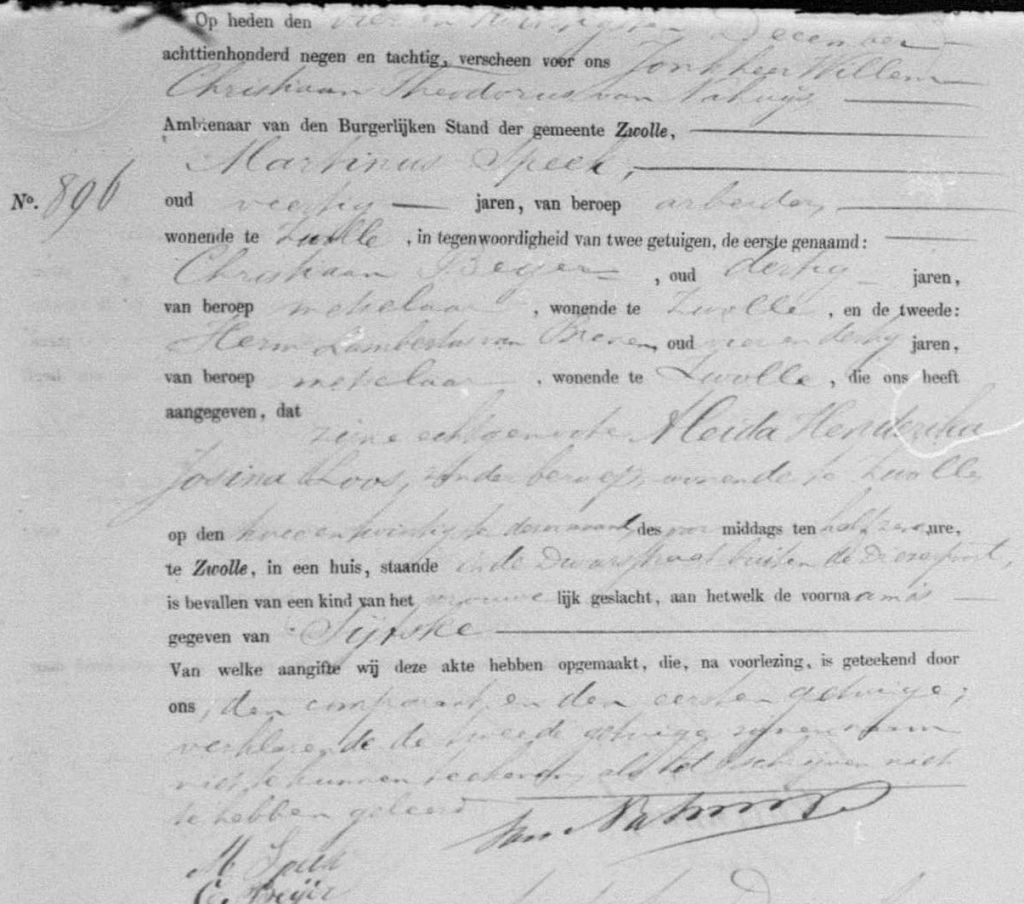 Op heden den vier en twintigsten December
achttienhonderd negen en tachtig, verscheen voor ons Jonkheer Willem
Christiaan Theodorus van Nahuijs
Ambtenaar van den Burgerlijken Stand der gemeente Zwolle,
Martinus Speek,
No. 896 oud veertig jaren, van beroep arbeider,
wonende te Zwolle, in tegenwoordigheid van twee getuigen, de eerste genaamd:
Christiaan Beyer, oud dertig jaren,
van beroep metselaar, wonende te Zwolle, en de tweede:
Herm Lambertus van Bremen, oud vier en dertig jaren,
van beroep metselaar, wonende te Zwolle, die ons heeft
aangegeven, dat
zijne echtgenoote Aleida Henderika
Josina Loos, zonder beroep, wonende te Zwolle
op den twee en twintigste dezer maand, des voor middags ten half zeven ure,
te Zwolle, in een huis, staande in de Dwarsstraat buiten de Diezepoort,
is bevallen van een kind van het vrouwe lijk geslacht, aan hetwelk de voorna am is
gegeven van Sijtske
Van welke aangifte wij deze akte hebben opgemaakt, die, na voorlezing, is geteekend door
ons, den comparant en den eersten getuige;
verklarende de tweede getuige zijnen naam
niet te kunnen teekenen, als het schrijven niet
te hebben geleerd
van Nahuijs
M Speek
C. Beijer